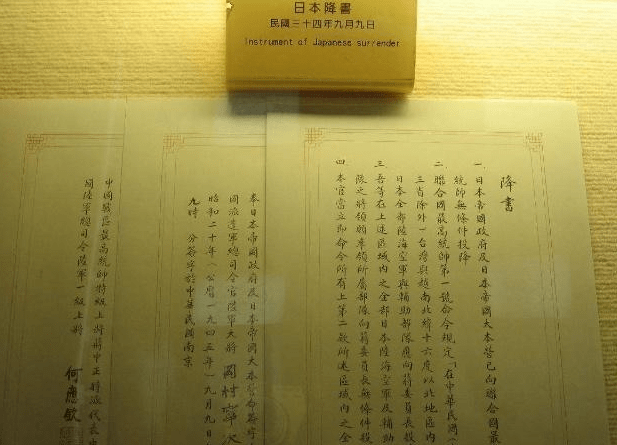 日本降書
民國三十四年九月九日
Instrument of Japanese surrender
降書
一、日本帝國政府及日本帝國大本營已向聯合國最
統帥無條件投降
二、聯合國最高統帥第一號命令規定「在中華民國
三省除外)台灣與越南北緯十六度以北地區內
日本全部陸海空軍與輔助部隊應向蔣委員長投
三、吾等在上述區域內之全部日本陸海空軍及輔助
隊之將領願率領所屬部隊向蔣委員長無條件投
四、本官當立即命令所有上第二款所述區域內之全
奉日本帝國政府及日本帝國大本營命簽字
國派遣軍總司令官陸軍大將 岡村寧次
昭和二十年(公曆一九四五年)九月九日
九時 分簽字於中華民國南京
中國戰區最高統帥特級上將蔣中正特派代表中
國陸軍總司令陸軍一級上將
何應欽